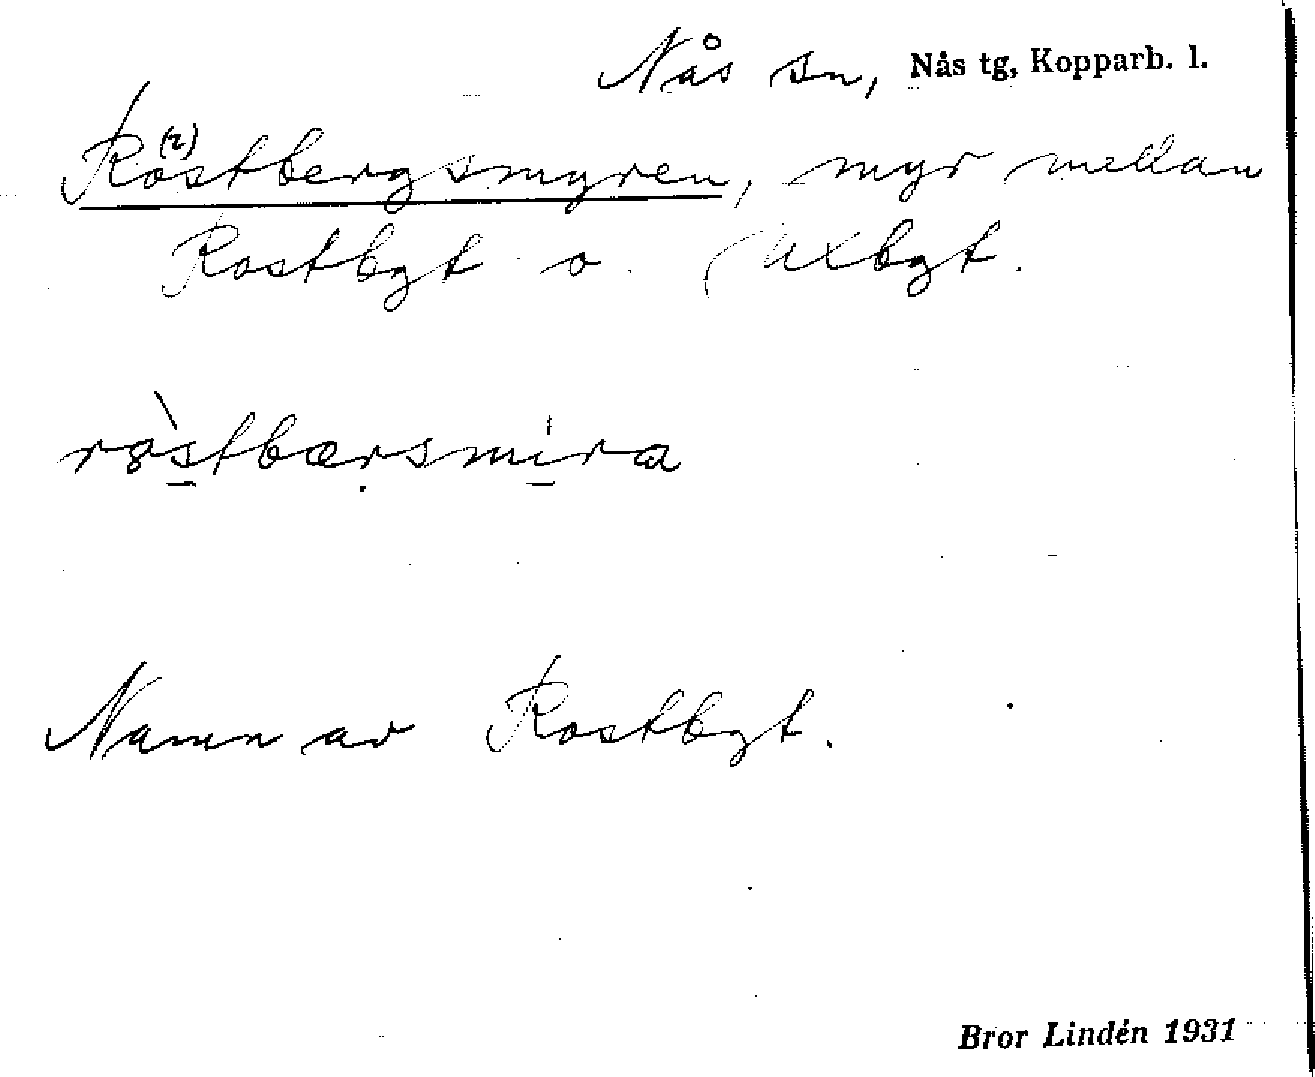 Nås sn, Nås tg, Kopparb. l.
Ro(2)stbergsmyren, myr mellan
Rostbgt o. Uxbgt.
Namn av Rostbgt.
Bror Lindén 1931